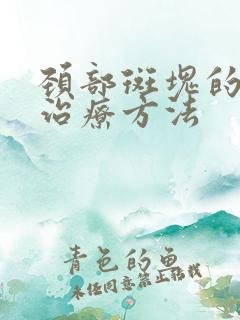 颈部斑塊的
治療方法
青色的魚
未经同意禁止转载